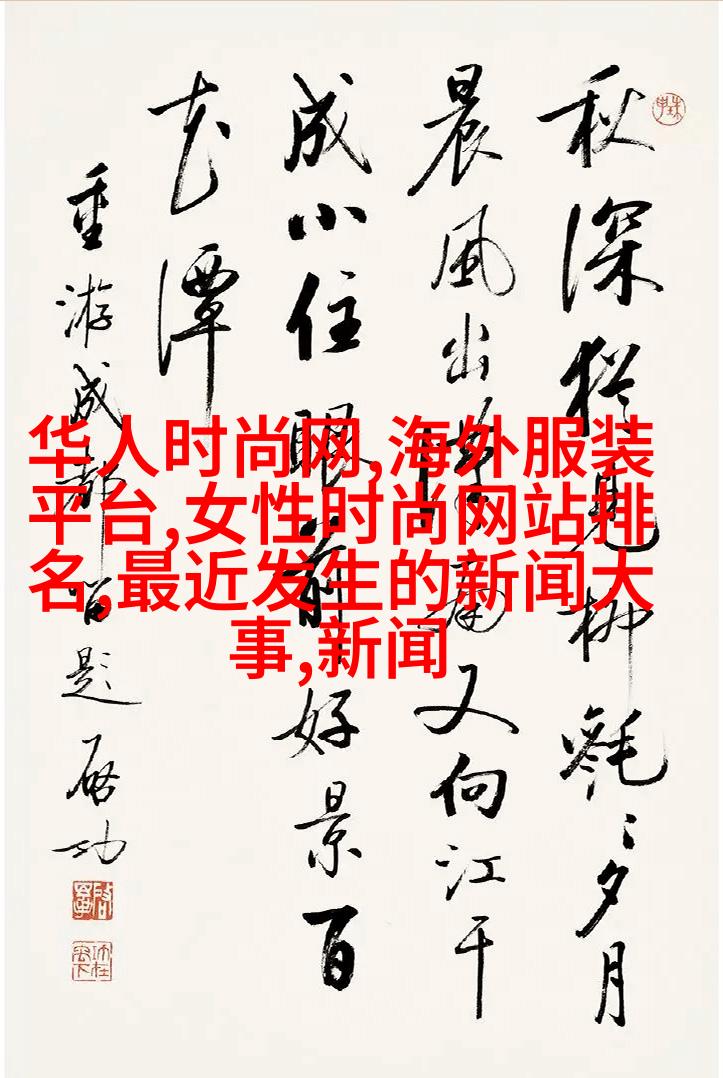 秋深猶見柳毿〻夕月
晨風出又向江干
成小住眼前好景百
花潭
重游成都留題 啟功
华人时尚网,海外服装
平台,女性时尚网站排
名,最近发生的新闻大
事,新闻